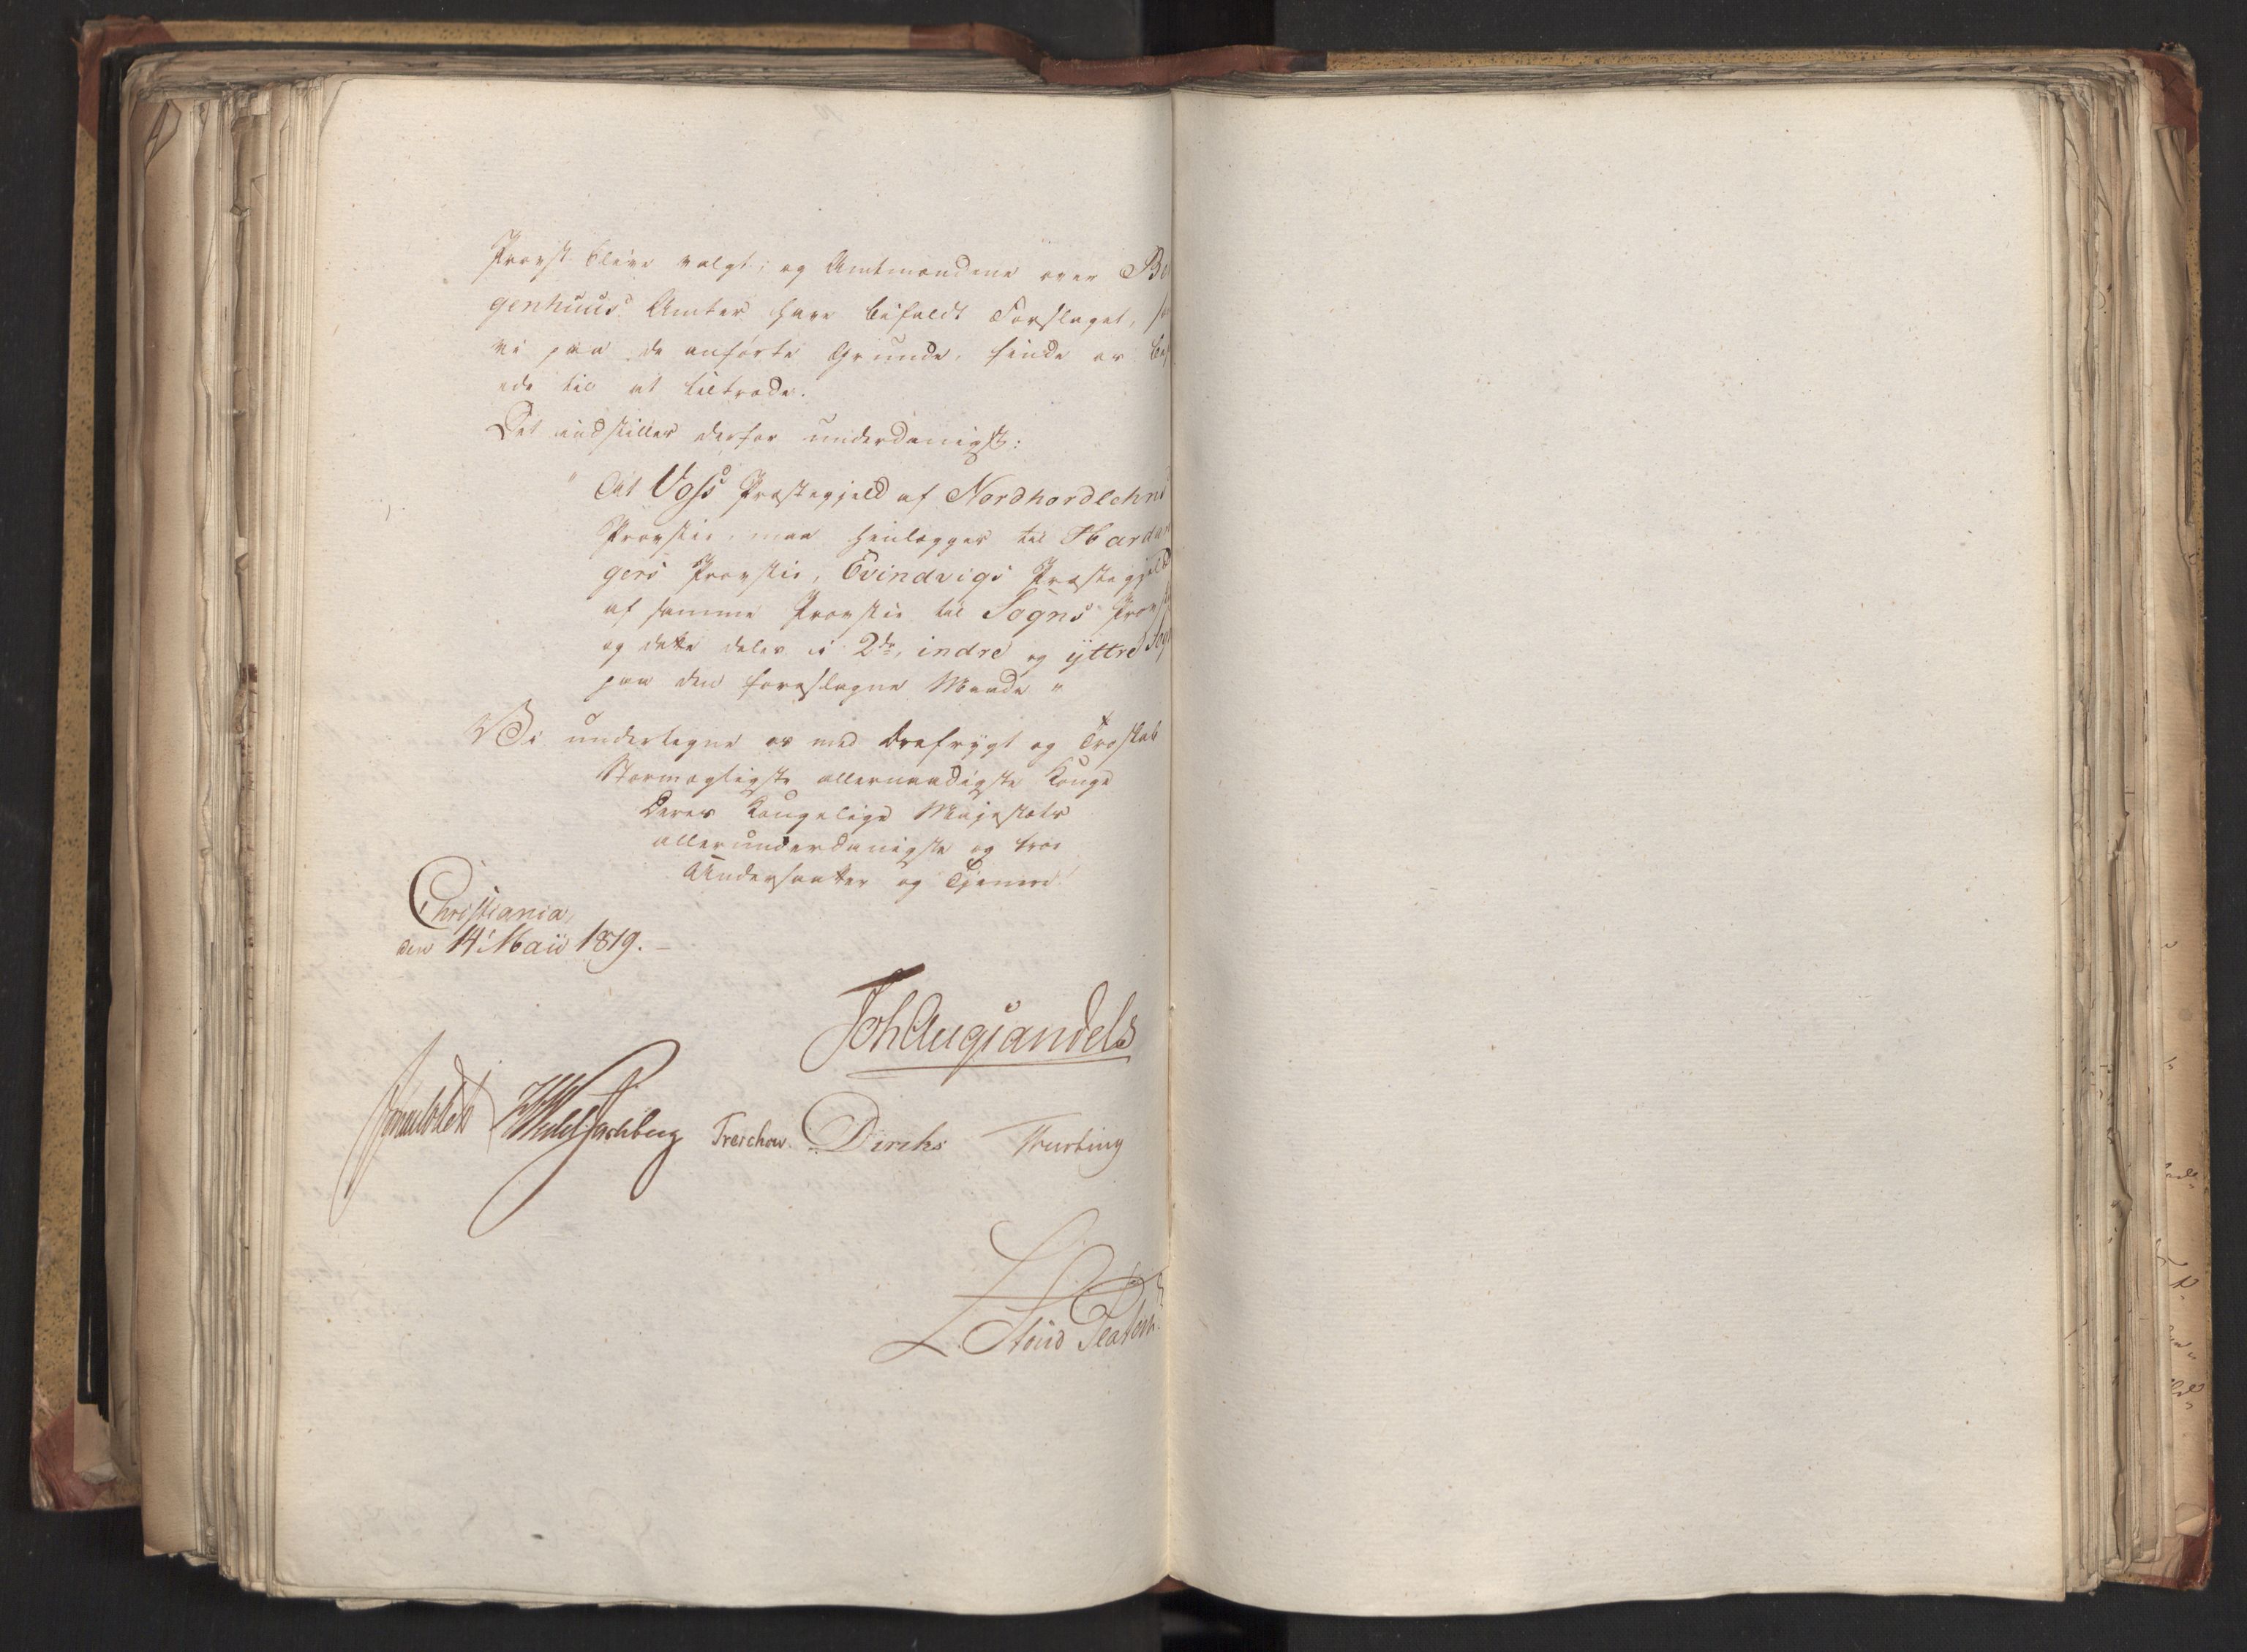 Provst bleve valgt; og Amtmændene over Be
genhuus Amter have bifaldt Forslaget, so
vi paa de anførte Grunde, finde os bef
ede til at tiltræde.
Det indstilles derfor underdanigst:
" At Voss Præstegjeld af Nordhordlehns
Provstie, maa henlægges til Hardan
gers Provstie, Evindvigs Præstegjeld
af samme Provstie til Sogns Provst
og dette deles i 2de, indre og yttre Sogn
paa den foreslagne Maade "
Vi undertegne os med Ærefrygt og Troskab
Stormægtigste allernaadigste Konge
Deres Kongelige Majestæts
allerunderdanigste og troe
Undersaatter og Tjenere
Christiania,
den 14 Maii 1819. –
Joh Aug Sandels
Sommerhielm HWedel Jarlsberg Treschow. Diriks Fasting
L. Stoud Platou